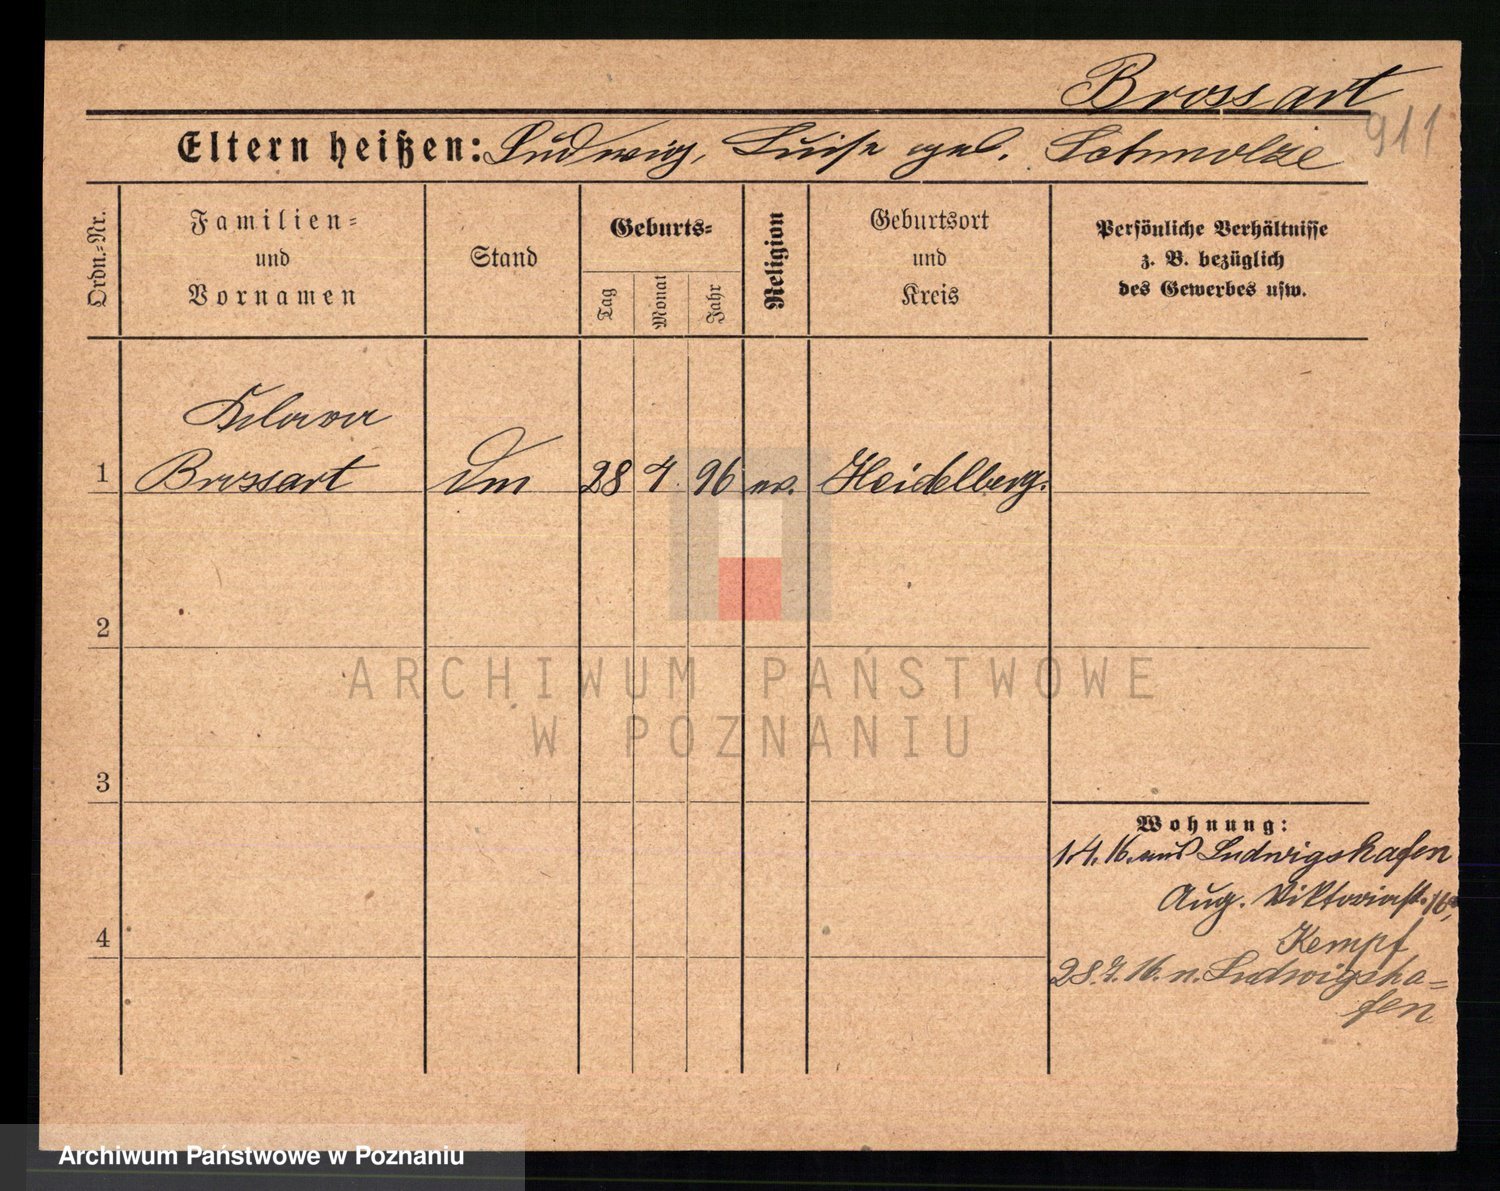 Brossart
911
Eltern heißen: Ludwig, Luise geb. Schmolze
Ordn.=Nr.
Familien=
und
Vornamen
Stand
Geburts=
Tag
Monat
Jahr
Religion
Geburtsort
und
Kreis
Persönliche Verhältnisse
z. B. bezüglich
des Gewerbes usw.
Klara
1 Brossart 28 4. 96 ev. Heidelberg.
2
3
4
Wohnung:
1.4.16. aus Ludwigshafen
Aug. Viktoriast. 16,
Kempf
28.7.16. n. Ludwigsha=
fen
ARCHIWUM PAŃSTWOWE
W POZNANIU
Archiwum Państwowe w Poznaniu